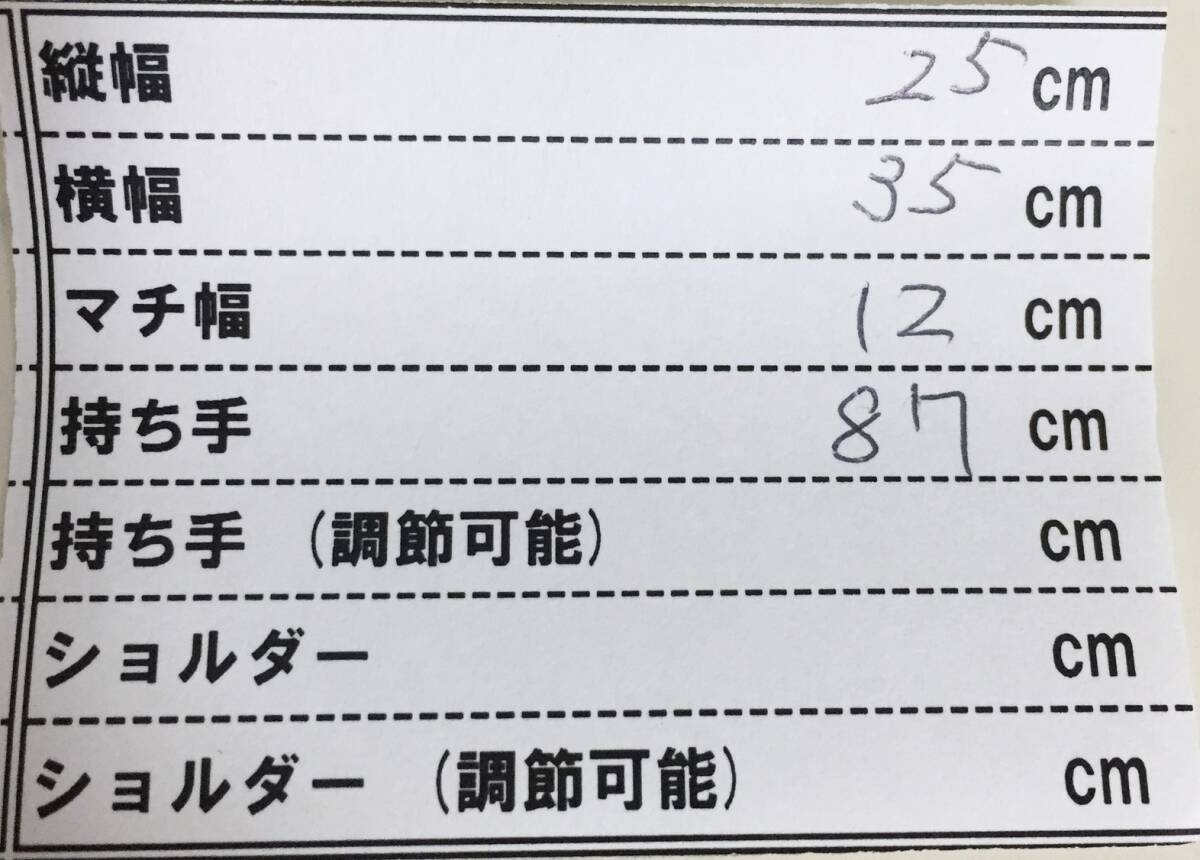 縦幅 25 cm
横幅 35 cm
マチ幅 12 cm
持ち手 87 cm
持ち手 (調節可能) cm
ショルダー cm
ショルダー (調節可能) cm